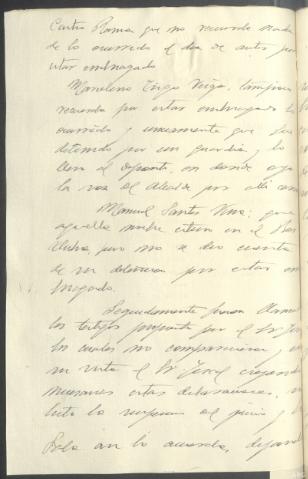 Castro Ramon que no recuerda nada
de lo ocurrido el dia de autos por
estar embriagado
Marcelino Trigo Veiga, tampoco
recuerda por estar embriagado lo
ocurrido y unicamente que fue
detenido por un guardia, lo
llevo al Deposito, en donde oyo
la voz del Alcalde por alli
Manuel Santos Vina: que
aquella noche estuvo en el
pero no se dio cuenta
de su detencion por estar em
briagado.
Seguidamente fueron llamados
los testigos propuestos por el Sr
los cuales no comparecieron
en su vista el Sr Fiscal
necesarias estas declaraciones,
la suspension del juicio y
Sala asi lo acuerda, dejando